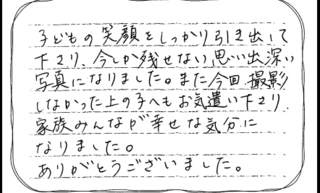 子どもの笑顔をしっかり引き出して
下さり、今しか残せない思い出深い
写真になりました。また今回撮影
しなかった上の子へもお気遣い下さり、
家族みんなが幸せな気分に
なりました。
ありがとうございました。